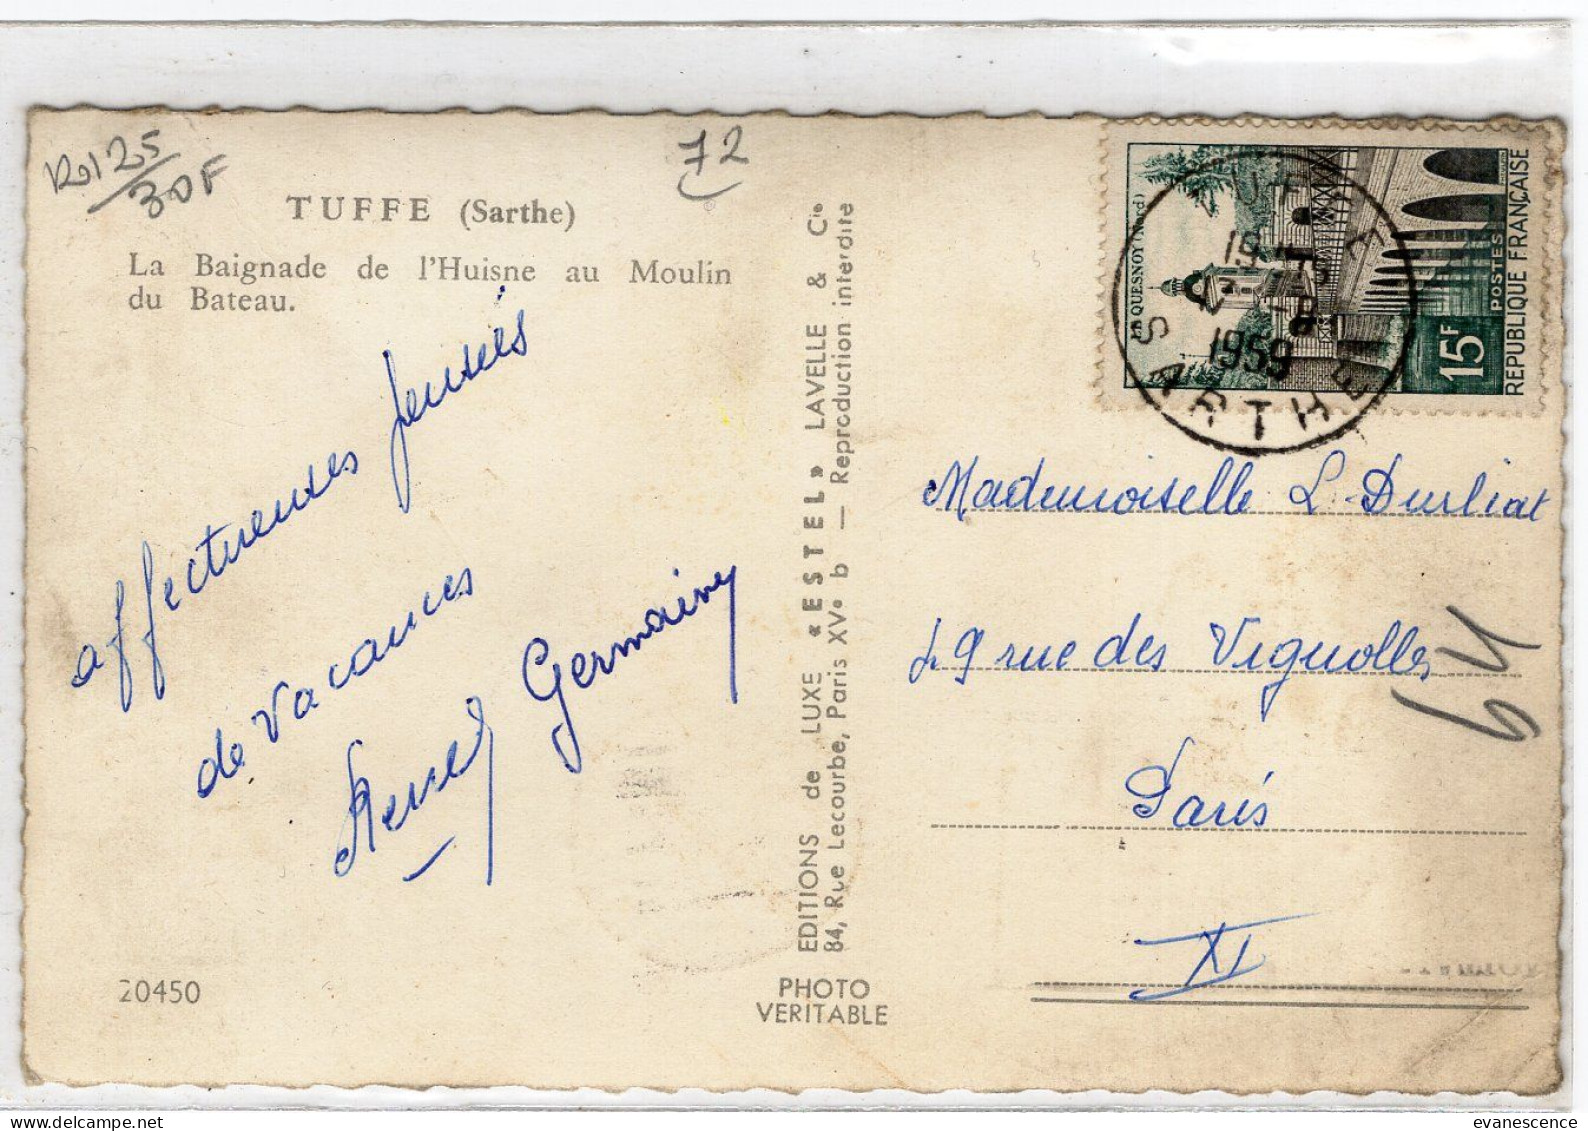 25
30F
72
TUFFE (Sarthe)
La Baignade de l'Huisne au Moulin
du Bateau.
affectueuses pensées
de vacances
Germainy
20450
EDITIONS de LUXE « ESTEL » LAVELLE & Cie
84, Rue Lecourbe, Paris XVe b — Reproduction interdite
PHOTO
VERITABLE
LE QUESNOY (Nord)
15F
POSTES
REPUBLIQUE FRANÇAISE
TUFFE
19
1959
SARTHE
Mademoiselle L. Durliat
49 rue des Vignolles
Paris
XI
64
evanescence